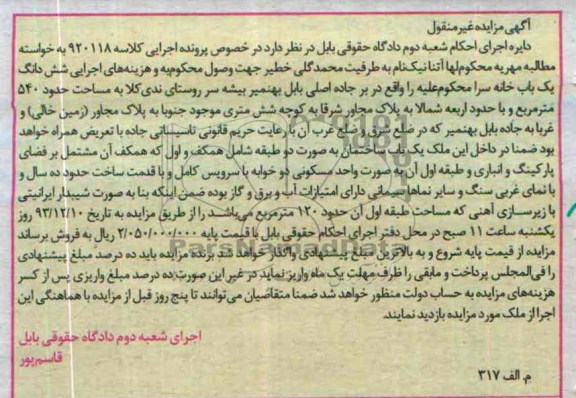 آگهی مزایده غیر منقول
دایره اجرای احکام شعبه دوم دادگاه حقوقی بابل در نظر دارد در خصوص پرونده اجرایی کلاسه ۹۲۰۱۱۸ به خواسته
مطالبه مهریه محکوم‌لها آتنا نیک‌نام به طرفیت محمدگلی خطیر جهت وصول محکوم‌به و هزینه‌های اجرایی شش دانگ
یک باب خانه سرا محکوم‌علیه را واقع در بر جاده اصلی بابل بهنمیر بیشه سر روستای ندی‌کلا به مساحت حدود ۵۴۰
مترمربع و با حدود اربعه شمالا به پلاک مجاور شرقا به کوچه شش متری موجود جنوبا به پلاک مجاور (زمین خالی) و
غربا به جاده بابل بهنمیر که در ضلع شرق و ضلع غرب آن با رعایت حریم قانونی تاسیساتی جاده با تعریض همراه خواهد
بود ضمنا در داخل این ملک یک باب ساختمان به صورت دو طبقه شامل همکف و اول که همکف آن مشتمل بر فضای
پارکینگ و انباری و طبقه اول آن به صورت واحد مسکونی دو خوابه با سرویس کامل و با قدمت ساخت حدود ده سال و
با نمای غربی سنگ و سایر نماها سیمانی دارای امتیازات آب و برق و گاز بوده ضمن اینکه بنا به صورت شیبدار ایرانیتی
با زیرسازی آهنی که مساحت طبقه اول آن حدود ۱۲۰ مترمربع می‌باشد را از طریق مزایده به تاریخ ۹۳/۱۲/۱۰ روز
یکشنبه ساعت ۱۱ صبح در محل دفتر اجرای احکام حقوقی بابل با قیمت پایه ۲/۰۵۰/۰۰۰/۰۰۰ ریال به فروش برساند
مزایده از قیمت پایه شروع و به بالاترین مبلغ پیشنهادی واگذار خواهد شد برنده مزایده باید ده درصد مبلغ پیشنهادی
را فی‌المجلس پرداخت و مابقی را ظرف مهلت یک ماه واریز نماید در غیر این صورت ده درصد مبلغ واریزی پس از کسر
هزینه‌های مزایده به حساب دولت منظور خواهد شد ضمنا متقاضیان می‌توانند تا پنج روز قبل از مزایده با هماهنگی این
اجرا از ملک مورد مزایده بازدید نمایند.
اجرای شعبه دوم دادگاه حقوقی بابل
قاسم‌پور
م. الف ۳۱۷
ParsNamadData